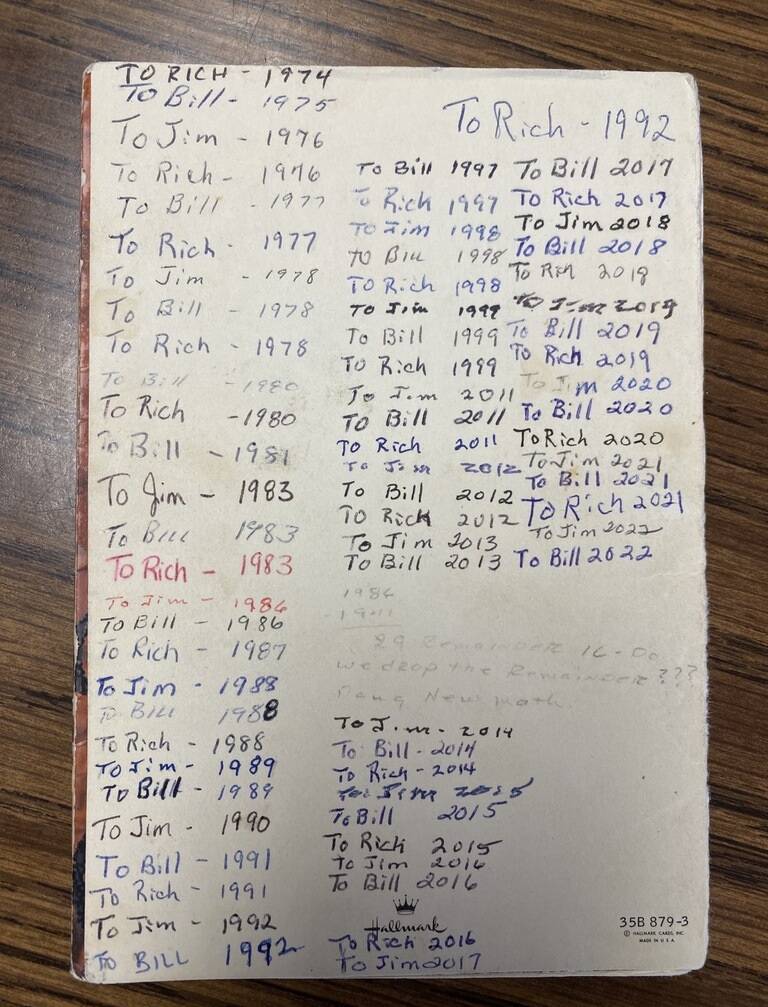 To Rich - 1974
To Bill - 1975
To Jim - 1976
To Rich - 1976
To Bill - 1977
To Rich - 1977
To Jim - 1978
To Bill - 1978
To Rich - 1978
To Bill - 1980
To Rich - 1980
To Bill - 1981
To Jim - 1983
To Bill 1983
To Rich - 1983
To Jim - 1986
To Bill - 1986
To Rich - 1987
To Jim - 1988
To Bill 1988
To Rich - 1988
To Jim - 1989
To Bill - 1989
To Jim - 1990
To Bill - 1991
To Rich - 1991
To Jim - 1992
To BILL 1992
To Rich - 1992
To Bill 1997
To Rich 1997
To Jim 1998
To Bill 1998
To Rich 1998
To Jim 1999
To Bill 1999
To Rich 1999
To Jim 2011
To Bill 2011
To Rich 2011
To Jim 2012
To Bill 2012
To Rich 2012
To Jim 2013
To Bill 2013
29 Remainder 16 - Do
we drop the Remainder ???
Dang New math.
To Jim - 2014
To Bill - 2014
To Rich - 2014
To Jim 2015
To Bill 2015
To Rich 2015
To Jim 2016
To Bill 2016
Hallmark
To Rich 2016
To Jim 2017
To Bill 2017
To Rich 2017
To Jim 2018
To Bill 2018
To Rich 2018
To Jim 2019
To Bill 2019
To Rich 2019
To Jim 2020
To Bill 2020
To Rich 2020
To Jim 2021
To Bill 2021
To Rich 2021
To Jim 2022
To Bill 2022
35B 879-3
© HALLMARK CARDS, INC.
MADE IN U.S.A.